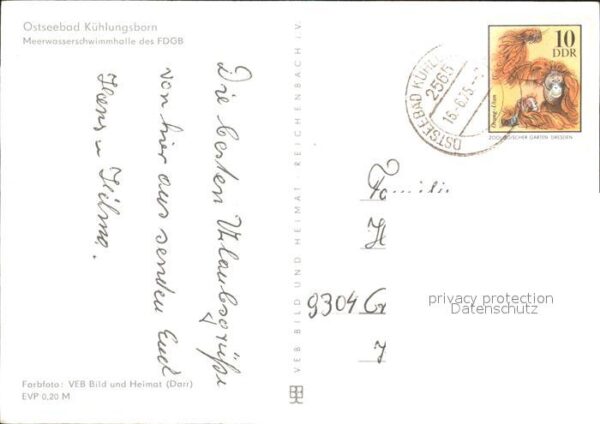 Ostseebad Kühlungsborn
Meerwasserschwimmhalle des FDGB
Die besten Urlaubsgrüße
von hier aus senden Euch
Hans u Hilma.
Farbfoto: VEB Bild und Heimat (Darr)
EVP 0,20 M
VEB BILD UND HEIMAT · REICHENBACH i.V.
OSTSEEBAD KÜHL
2565
10
DDR
Orang-Utan
ZOOLOGISCHER GARTEN DRESDEN
Familie
H
9304
privacy protection
Datenschutz